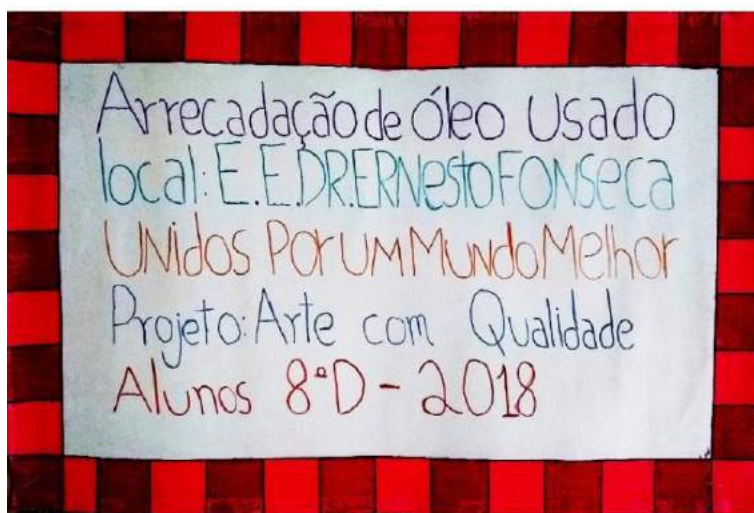 Arrecadação de Óleo Usado
local: E.E.DR.ERNesto FONseca
UNidos Por UM MuNdo Melhor
Projeto: Arte com Qualidade
Alunos 8ªD - 2018